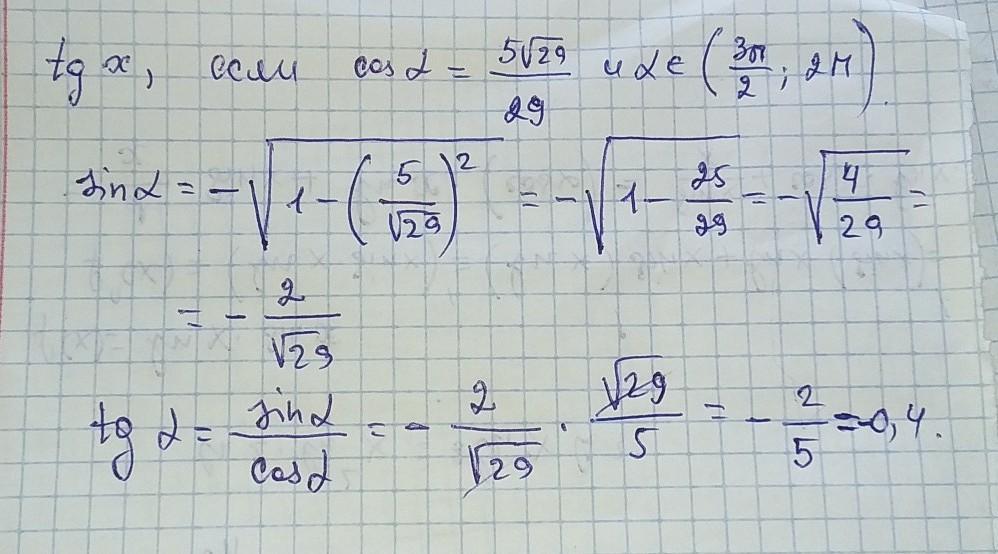 tg x, если cos α = 5√29/29 и α ∈ (3π/2; 2π).
sin α = -√(1 - (5/√29)²) = -√(1 - 25/29) = -√(4/29) =
= - 2/√29
tg α = sin α/cos α = - 2/√29 · √29/5 = - 2/5 = -0,4.